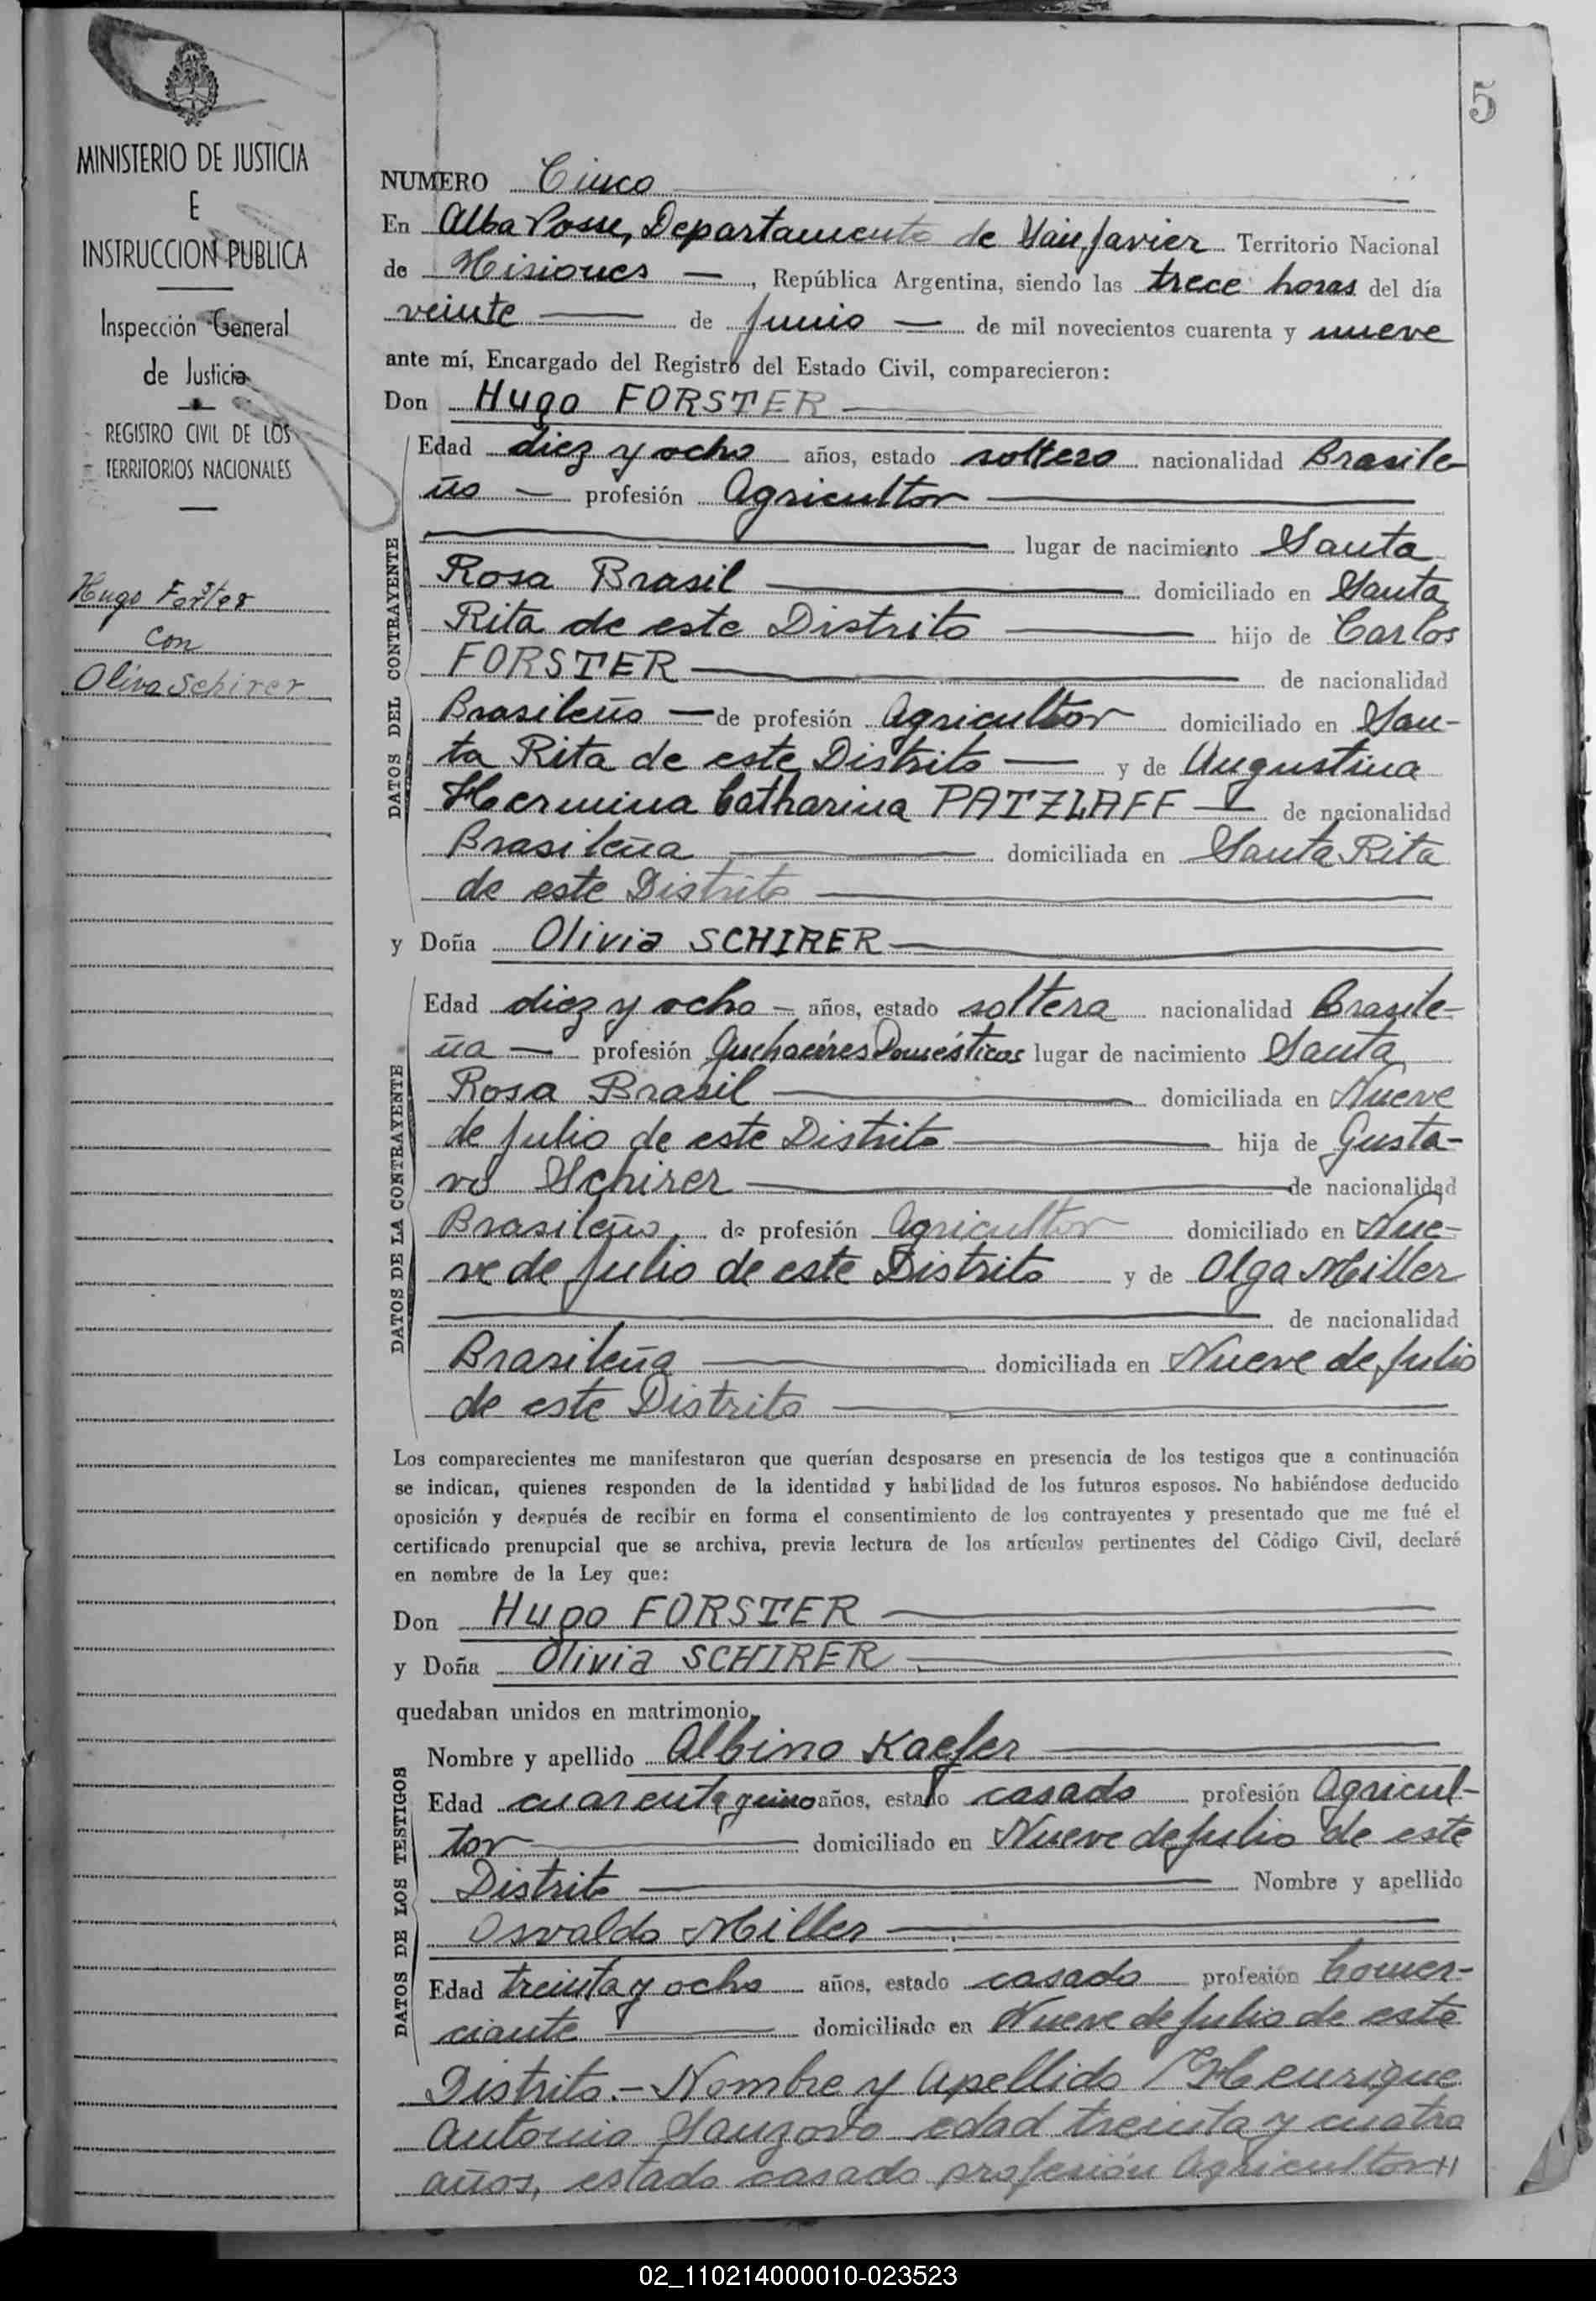 5
MINISTERIO DE JUSTICIA
E
INSTRUCCION PUBLICA
Inspección General
de Justicia
REGISTRO CIVIL DE LOS
TERRITORIOS NACIONALES
Hugo Forster
con
Oliva Schirer
NUMERO Cinco
En Alba Posse, Departamento de San Javier Territorio Nacional
de Misiones —, República Argentina, siendo las trece horas del día
veinte — de Junio — de mil novecientos cuarenta y nueve
ante mí, Encargado del Registro del Estado Civil, comparecieron:
Don Hugo FORSTER
DATOS DEL CONTRAYENTE
Edad diez y ocho años, estado soltero nacionalidad Brasile-
ño — profesión Agricultor
lugar de nacimiento Santa
Rosa Brasil — domiciliado en Santa
Rita de este Distrito — hijo de Carlos
FORSTER — de nacionalidad
Brasileño — de profesión Agricultor domiciliado en San-
ta Rita de este Distrito — y de Augustina
Hermina Catharina PATZLAFF — de nacionalidad
Brasileña — domiciliada en Santa Rita
de este Distrito
y Doña Olivia SCHIRER
DATOS DE LA CONTRAYENTE
Edad diez y ocho — años, estado soltera nacionalidad Brasile-
ña — profesión Quehaceres Domésticos lugar de nacimiento Santa
Rosa Brasil — domiciliada en Nueve
de Julio de este Distrito — hija de Gusta-
vo Schirer — de nacionalidad
Brasileño de profesión Agricultor domiciliado en Nue-
ve de Julio de este Distrito y de Olga Miller
de nacionalidad
Brasileña — domiciliada en Nueve de Julio
de este Distrito
Los comparecientes me manifestaron que querían desposarse en presencia de los testigos que a continuación
se indican, quienes responden de la identidad y habilidad de los futuros esposos. No habiéndose deducido
oposición y después de recibir en forma el consentimiento de los contrayentes y presentado que me fué el
certificado prenupcial que se archiva, previa lectura de los artículos pertinentes del Código Civil, declaré
en nombre de la Ley que:
Don Hugo FORSTER
y Doña Olivia SCHIRER
quedaban unidos en matrimonio.
DATOS DE LOS TESTIGOS
Nombre y apellido Albino Kaefer
Edad cuarenta años, estado casado profesión Agricul-
tor — domiciliado en Nueve de Julio de este
Distrito — Nombre y apellido
Osvaldo Miller
Edad treinta y ocho años, estado casado profesión Comer-
ciante — domiciliado en Nueve de Julio de este
Distrito.- Nombre y Apellido Henrique
Antonio edad treinta y cuatro
años, estado casado profesión Agricultor
02_110214000010-023523